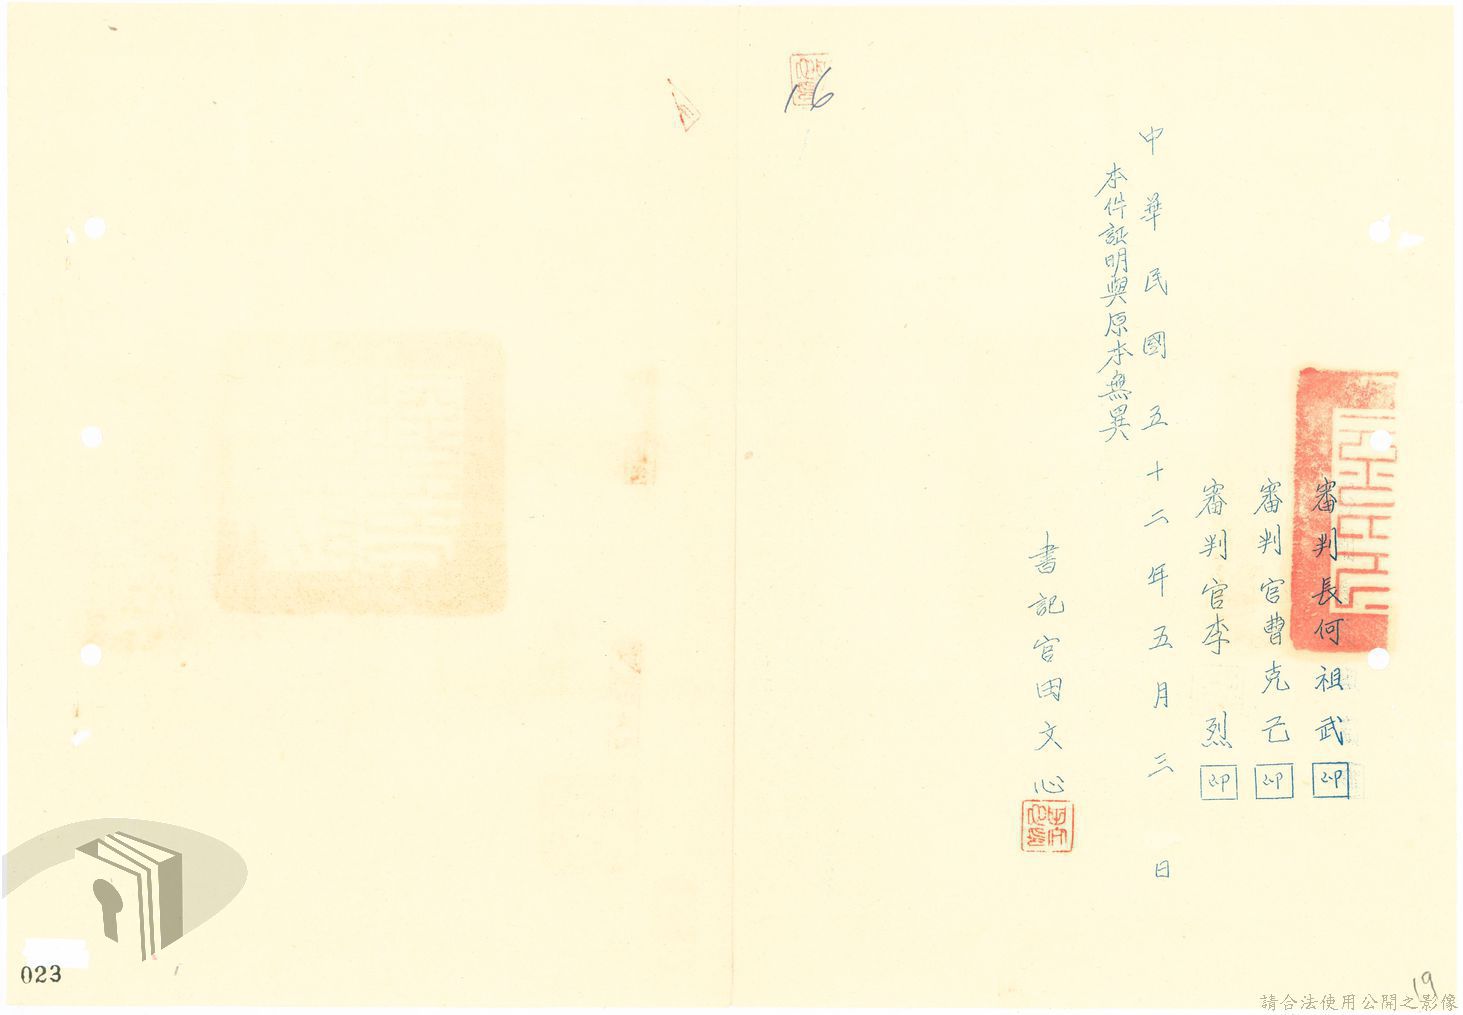 審判長何祖武印
審判官曹克己印
審判官李烈印
中華民國五十二年五月三日
本件証明與原本無異
書記官田文心
16
19
023
請合法使用公開之影像